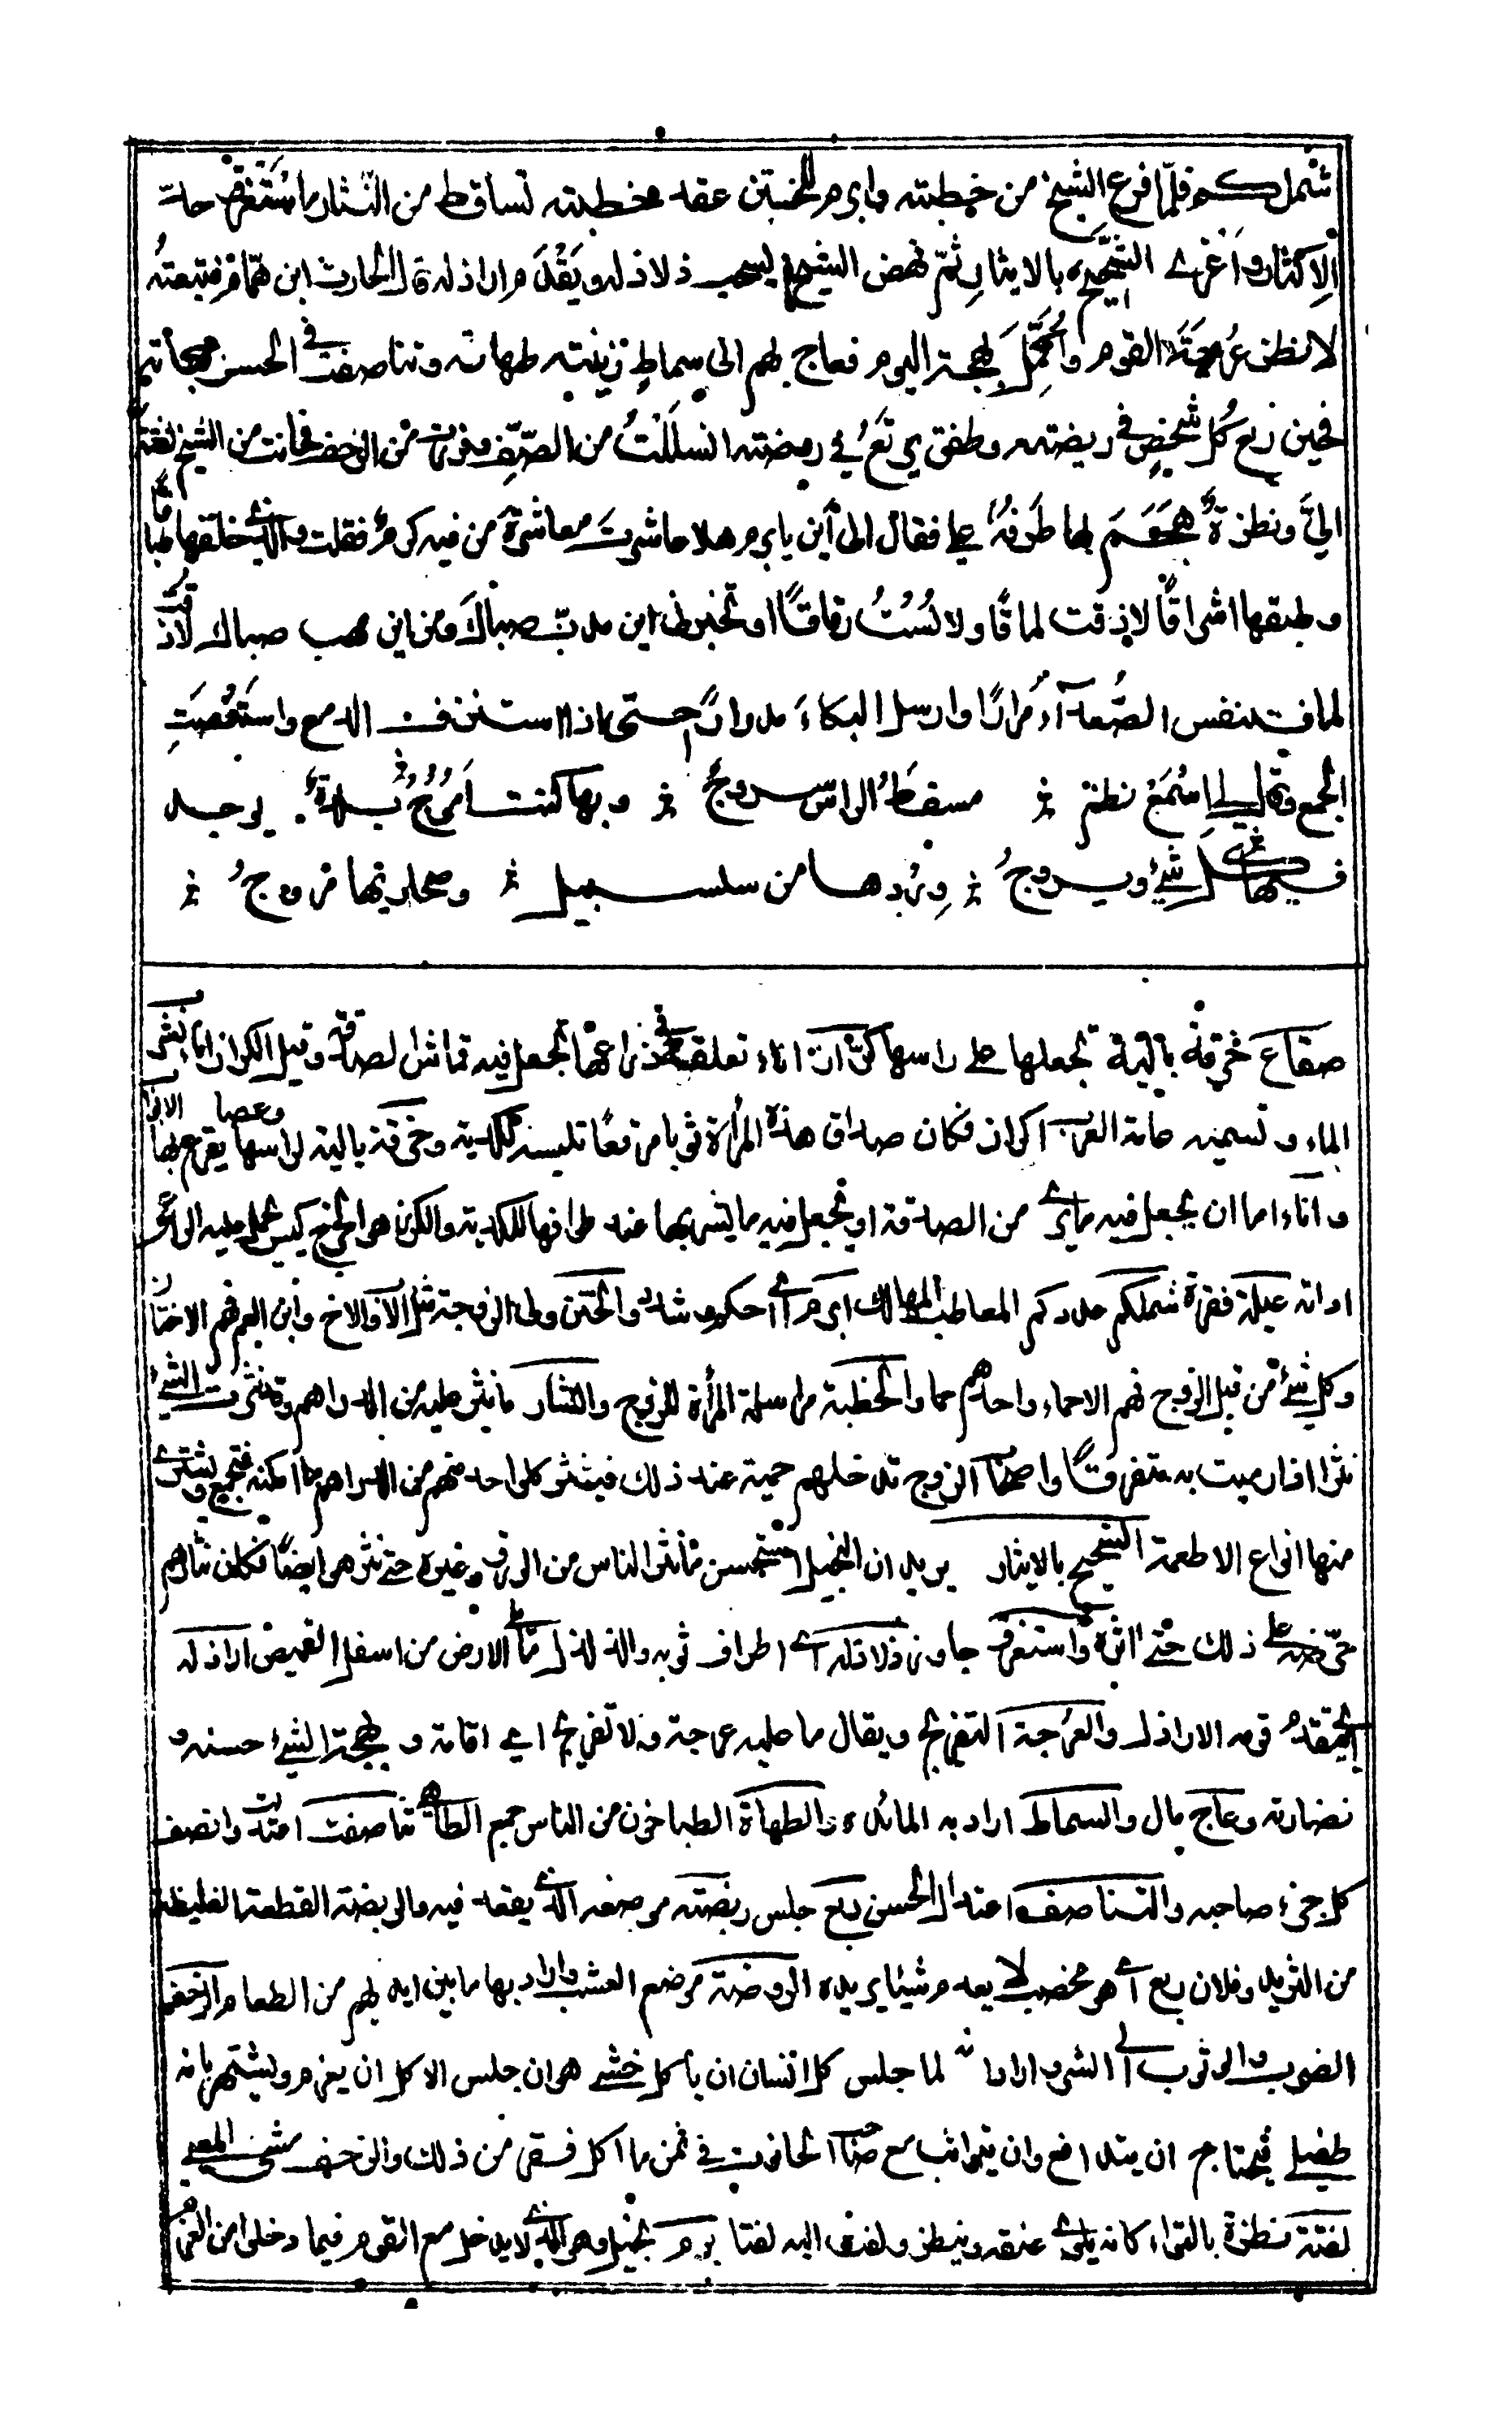 شملكم فلمّا فرغ الشيخ من خطبته وابرم للختن عقد خطبته تساقط من النّثار ما استغرق حدّ
الاكثار واغرى الشحيح بالايثار ثمّ نهض الشيخ يسحب ذلاذله ويقدم اراذله قال الحارث ابن همّام فتبعته
لانظر عُرجة القوم واكمّل بهجة اليوم فعاج بهم الى سماط زينته طهاته وتناصفت في الحسن جهاته
فحين ربع كُلّ شخص في ربضته وطفق يرتع في روضته انسللتُ من الصّفّ وفررت من الزحف فحانت من الشيخ لفتة
اليّ ونظرة هجم بها طرفه علي فقال الى اين يا برم هلا عاشرت معاشرة من فيه كرم فقلت والذي خلقها طباقا
وطبقها اشراقًا لا ذقت لماقًا ولا لُستُ رقاقًا او تخبرني اين مدبّ صباك ومن اين مهب صباك
فتنفس الصّعدآء مرارًا وارسل البكاء مدرارًا حتى اذا استنزف الدمع واستنصت
الجمع وقال لي اسمع نظم ؞ مسقط الراس سروج ؞ وبها كنت اموج ؞ بلدة يوجد
فيها كل شئ ويروج ؞ وِردها من سلسبيل ؞ وصحاريها مروج ؞
صقاع خرقة بالية تجعلها على راسها كرّاز اناء تعلقه في ذراعها تجعل فيه قماش الصدقة وقيل الكراز اناء
الماء وتسميه عامة العرب الكراز فكان صداق هذه المرأة ثوبا مرقعًا تلبسه للكدية وخرقة بالية لراسها وعصا يقرع بها الابواب
واناء اما ان يجعل فيه ماياتي من الصدقة او تجعل فيه ما يشربها عند طوافها للكدية والكرز هو الخرج كيس يحمل عليه الراعي
اداته عيلة فقرة شملكم عددكم المعاطب المهالك ابرم اي احكم وشاد والختن ولي الزوجة مثل الاب والاخ وابن العم فهم الاختان
وكل شئ من قبل الزوج فهم الاحماء واحدهم حما والخطبة مراسلة المرأة للزوج والنثار ما ينثر عليه من الدراهم وقد نثرت الشئ
نثرا اذا رميت به متفرقًا واصحاب الزوج تدخلهم حمية عند ذلك فينثر كل واحد منهم من الدراهم ما امكنه فتجمع ويشترى
منها انواع الاطعمة الشحيح بالايثار يريد ان البخيل استحسن ما نثر الناس من الورق وغيره حتى نثر هو ايضًا فكان نثارهم
حرّضه على ذلك حتى اثره واستغرق جاوز ذلاذله اي اطراف ثوبه والذلاذل ما يلي الارض من اسفل القميص اراذله
قومه الاراذل والعرجة التعريج ويقال ما عليه عرجة ولا تعريج اي اقامة وبهجة الشئ حسنه و
نضارته وعاج مال والسماط اراد به المائدة والطهاة الطباخون من الناس جمع الطاهي تناصفت اعتدلت وانصف
كل جزء صاحبه والتناصف اعتدال الحسن ربع جلس ربضته موضعه الذي يقعد فيه والربضة القطعة الغليظة
من الثريد وفلان ربع اي هو مخصب لا يعدم شيئا يريده الروضة موضع العشب واراد بها ما بين ايديهم من الطعام الزحف
الضرب والوثوب الى الشر اراد انه لما جلس كل انسان ان ياكل خشي هو ان جلس للاكل ان يغرم ويشتهر بانه
طفيلي فيحتاج ان يتدافع وان يتواثب مع صاحب الحانوت في ثمن ما اكل ففر من ذلك والزحف مشي المعيي
لفتة نظرة بالتواء كانه يلوي عنقه وينظر ولفت اليه لفتا برم بخيل وهو الذي لا يدخل مع القوم فيما دخلوا من الغرم